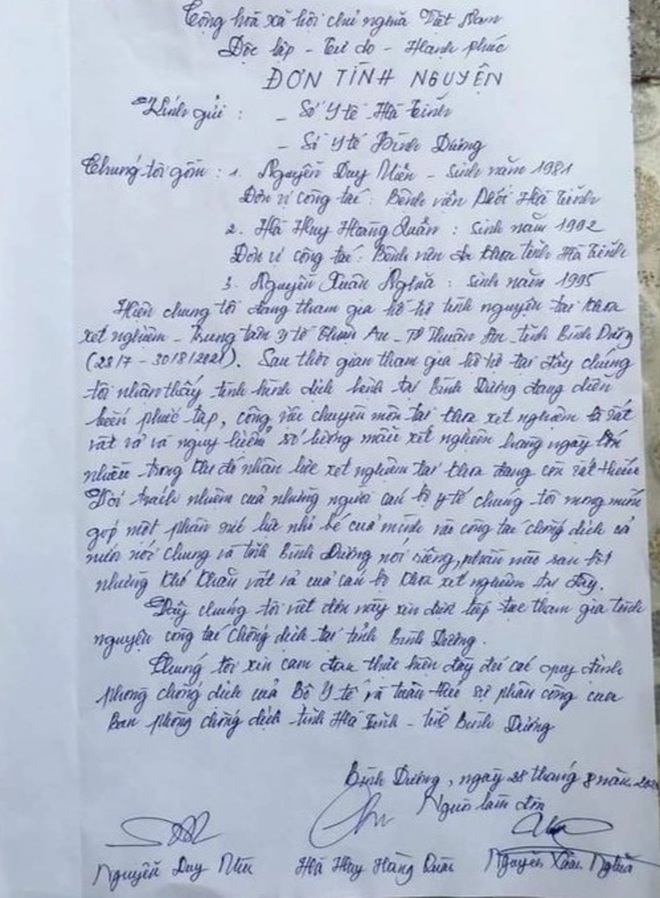 Cộng hoà xã hội chủ nghĩa Việt Nam
Độc lập - Tự do - Hạnh phúc
ĐƠN TÌNH NGUYỆN
Kính gửi : - Sở Y tế Hà Tĩnh
- Sở Y tế Bình Dương
Chúng tôi gồm : 1. Nguyễn Duy Nhiên - Sinh năm 1981
Đơn vị công tác : Bệnh viện Phổi Hà Tĩnh
2. Hà Huy Hoàng Quân : Sinh năm 1992
Đơn vị công tác : Bệnh viện đa khoa tỉnh Hà Tĩnh
3. Nguyễn Xuân Nghĩa : Sinh năm 1995
Hiện chúng tôi đang tham gia hỗ trợ tình nguyện tại khoa
xét nghiệm - Trung tâm y tế Thuận An - TP Thuận An - tỉnh Bình Dương
(28/7 - 30/8/2021). Sau thời gian tham gia hỗ trợ tại đây chúng
tôi nhận thấy tình hình dịch bệnh tại Bình Dương đang diễn
biến phức tạp, công việc chuyên môn tại khoa xét nghiệm là rất
vất vả và nguy hiểm, số lượng mẫu xét nghiệm hàng ngày lớn
nhiều trong khi đó nhân lực xét nghiệm tại khoa đang còn rất thiếu
Với trách nhiệm của những người cán bộ y tế chúng tôi mong muốn
góp một phần sức lực nhỏ bé của mình vào công tác chống dịch cả
nước nói chung và tỉnh Bình Dương nói riêng, phần nào san bớt
những khó khăn vất vả của cán bộ khoa xét nghiệm tại đây.
Vậy chúng tôi viết đơn này xin được tiếp tục tham gia tình
nguyện công tác chống dịch tại tỉnh Bình Dương.
Chúng tôi xin cam đoan thực hiện đầy đủ các quy định
phòng chống dịch của Bộ Y tế và tuân thủ sự phân công của
Ban phòng chống dịch tỉnh Hà Tĩnh - tỉnh Bình Dương
Bình Dương, ngày 28 tháng 8 năm
Người làm đơn
Nguyễn Duy Hà Huy Hoàng Quân Nguyễn Xuân Nghĩa